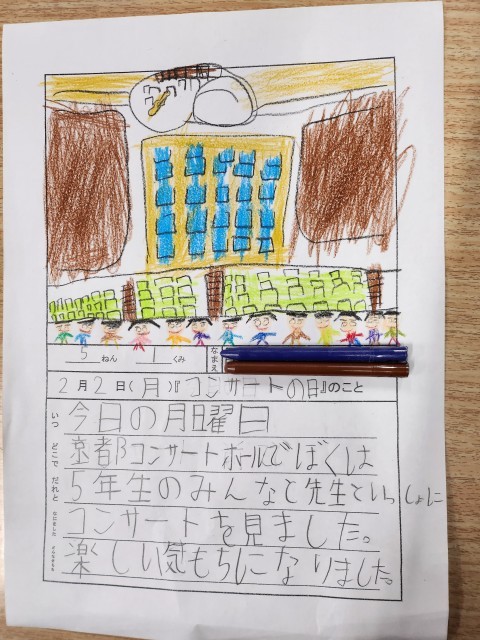 5 ねん 1 くみ なまえ
2月2日(月)『コンサートの日』のこと
いつ どこで だれと
今日の月曜日
京者βコンサートホールでぼくは
5年生のみんなと先生といっしょに
コンサートを見ました。
楽しい気もちになりました。